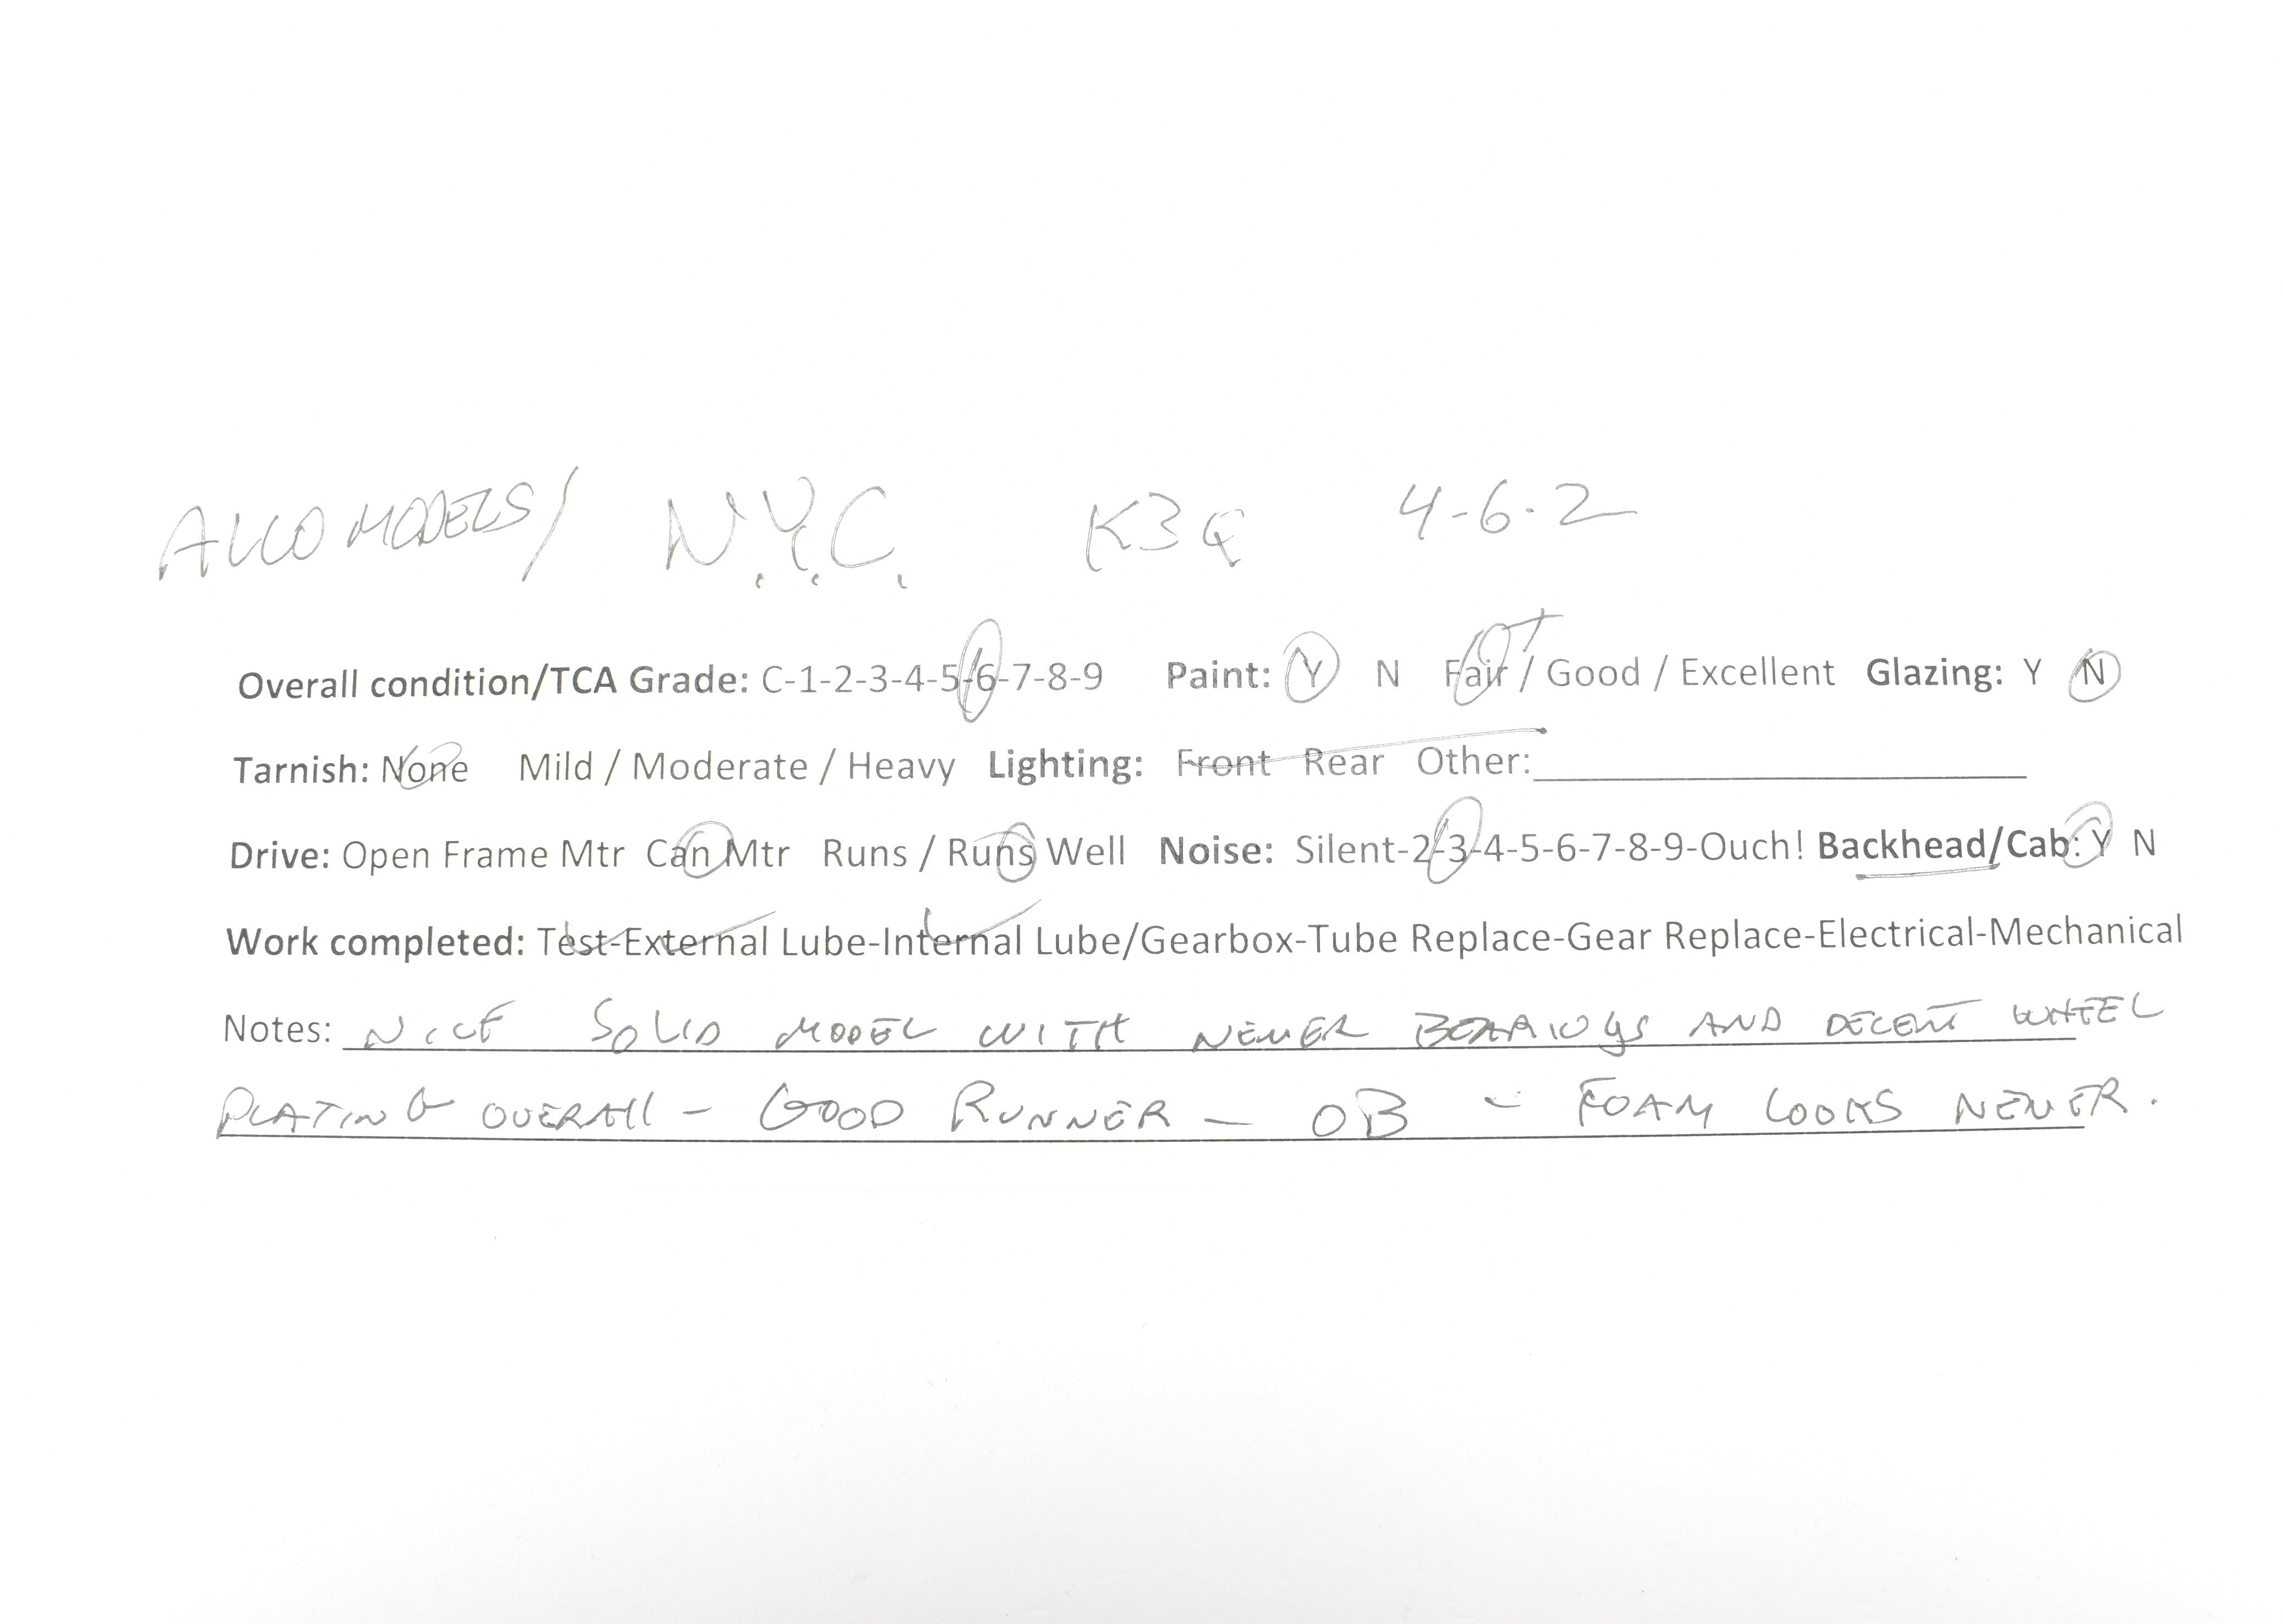 ALCO MODELS/ N.Y.C. K3q 4-6-2
Overall condition/TCA Grade: C-1-2-3-4-5-6-7-8-9 Paint: Y N Fair / Good / Excellent Glazing: Y N
Tarnish: None Mild / Moderate / Heavy Lighting: Front Rear Other:
Drive: Open Frame Mtr Can Mtr Runs / Runs Well Noise: Silent-2-3-4-5-6-7-8-9-Ouch! Backhead/Cab: Y N
Work completed: Test-External Lube-Internal Lube/Gearbox-Tube Replace-Gear Replace-Electrical-Mechanical
Notes: NICE SOLID MODEL WITH NEWER BEARINGS AND DECENT WHEEL
PLATING OVERALL - GOOD RUNNER - OB - FOAM LOOKS NEWER.